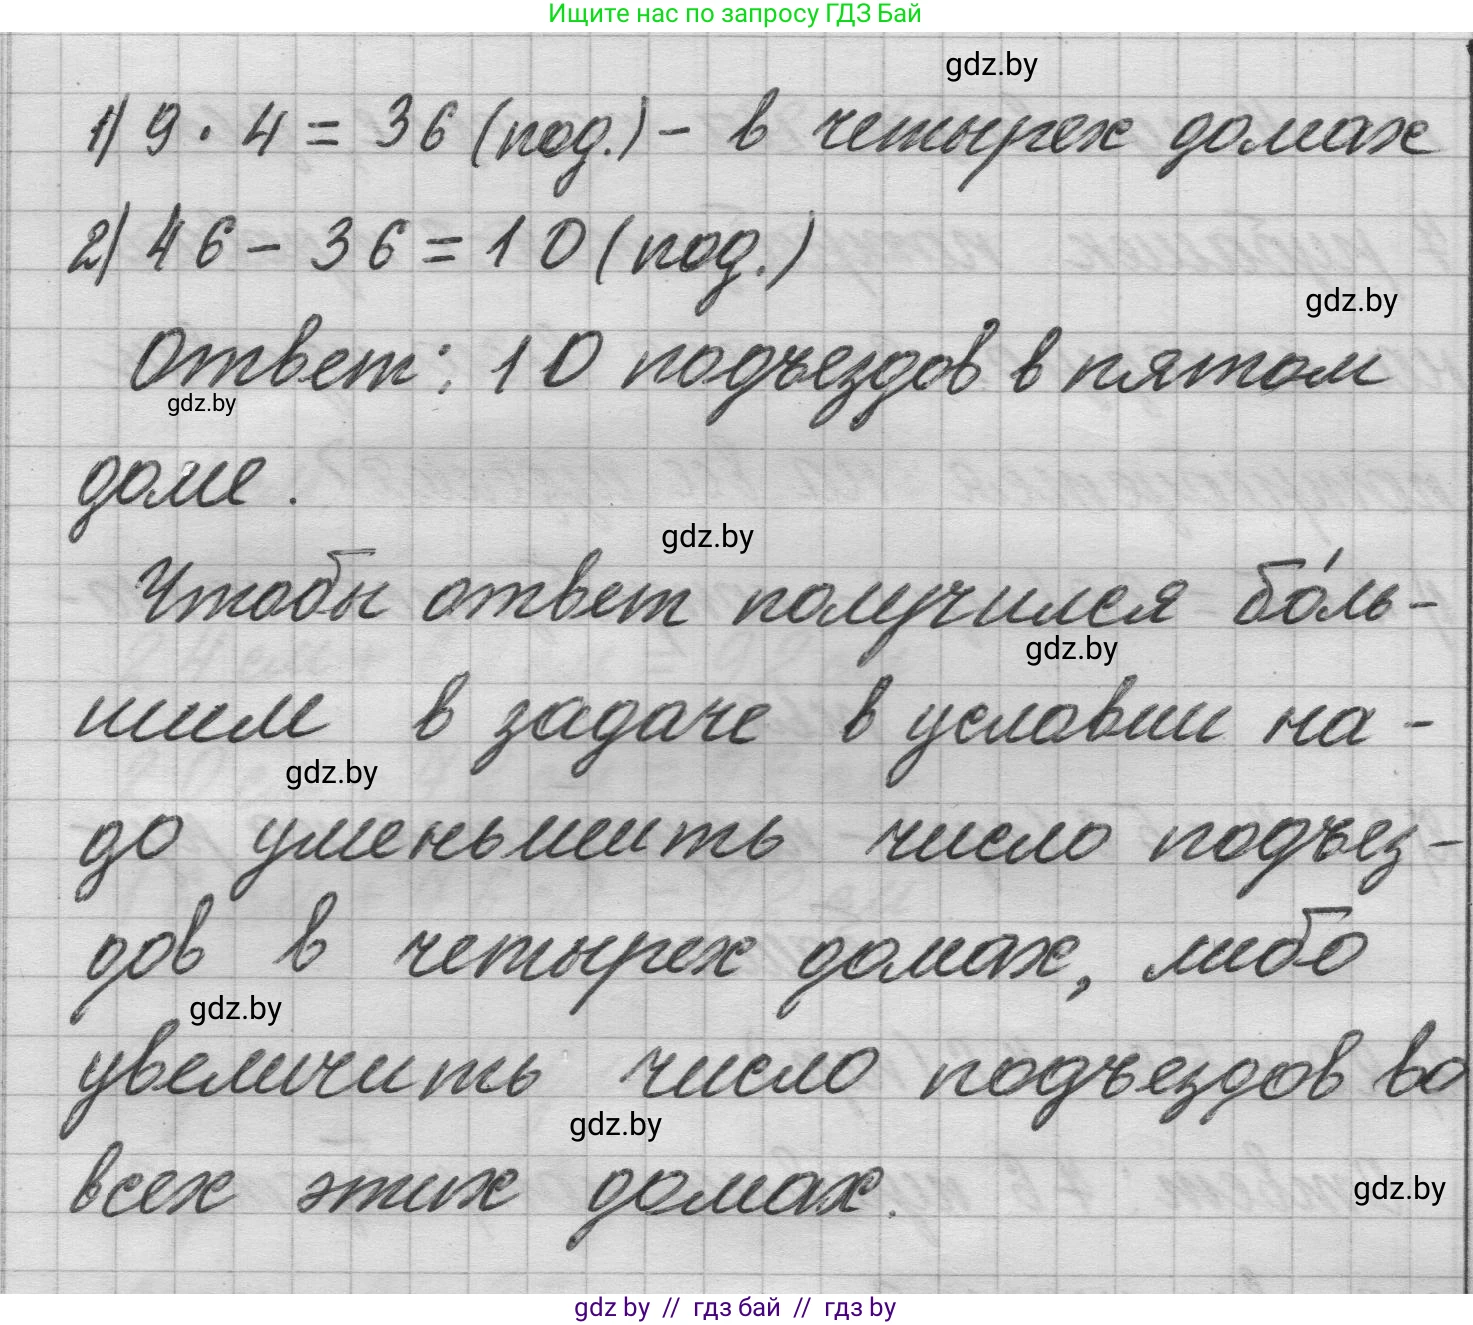 Ищите нас по запросу ГДЗ Бай
gdz.by
1) 9 · 4 = 36 (под.) – в четырех домах
2) 46 – 36 = 10 (под.)
gdz.by
Ответ: 10 подъездов в пятом
gdz.by
доме.
gdz.by
Чтобы ответ получился бо́ль-
gdz.by
шим в задаче в условии на-
gdz.by
до уменьшить число подъез-
дов в четырех домах, либо
gdz.by
увеличить число подъездов во
gdz.by
всех этих домах.
gdz.by
gdz by // гдз бай // гдз by